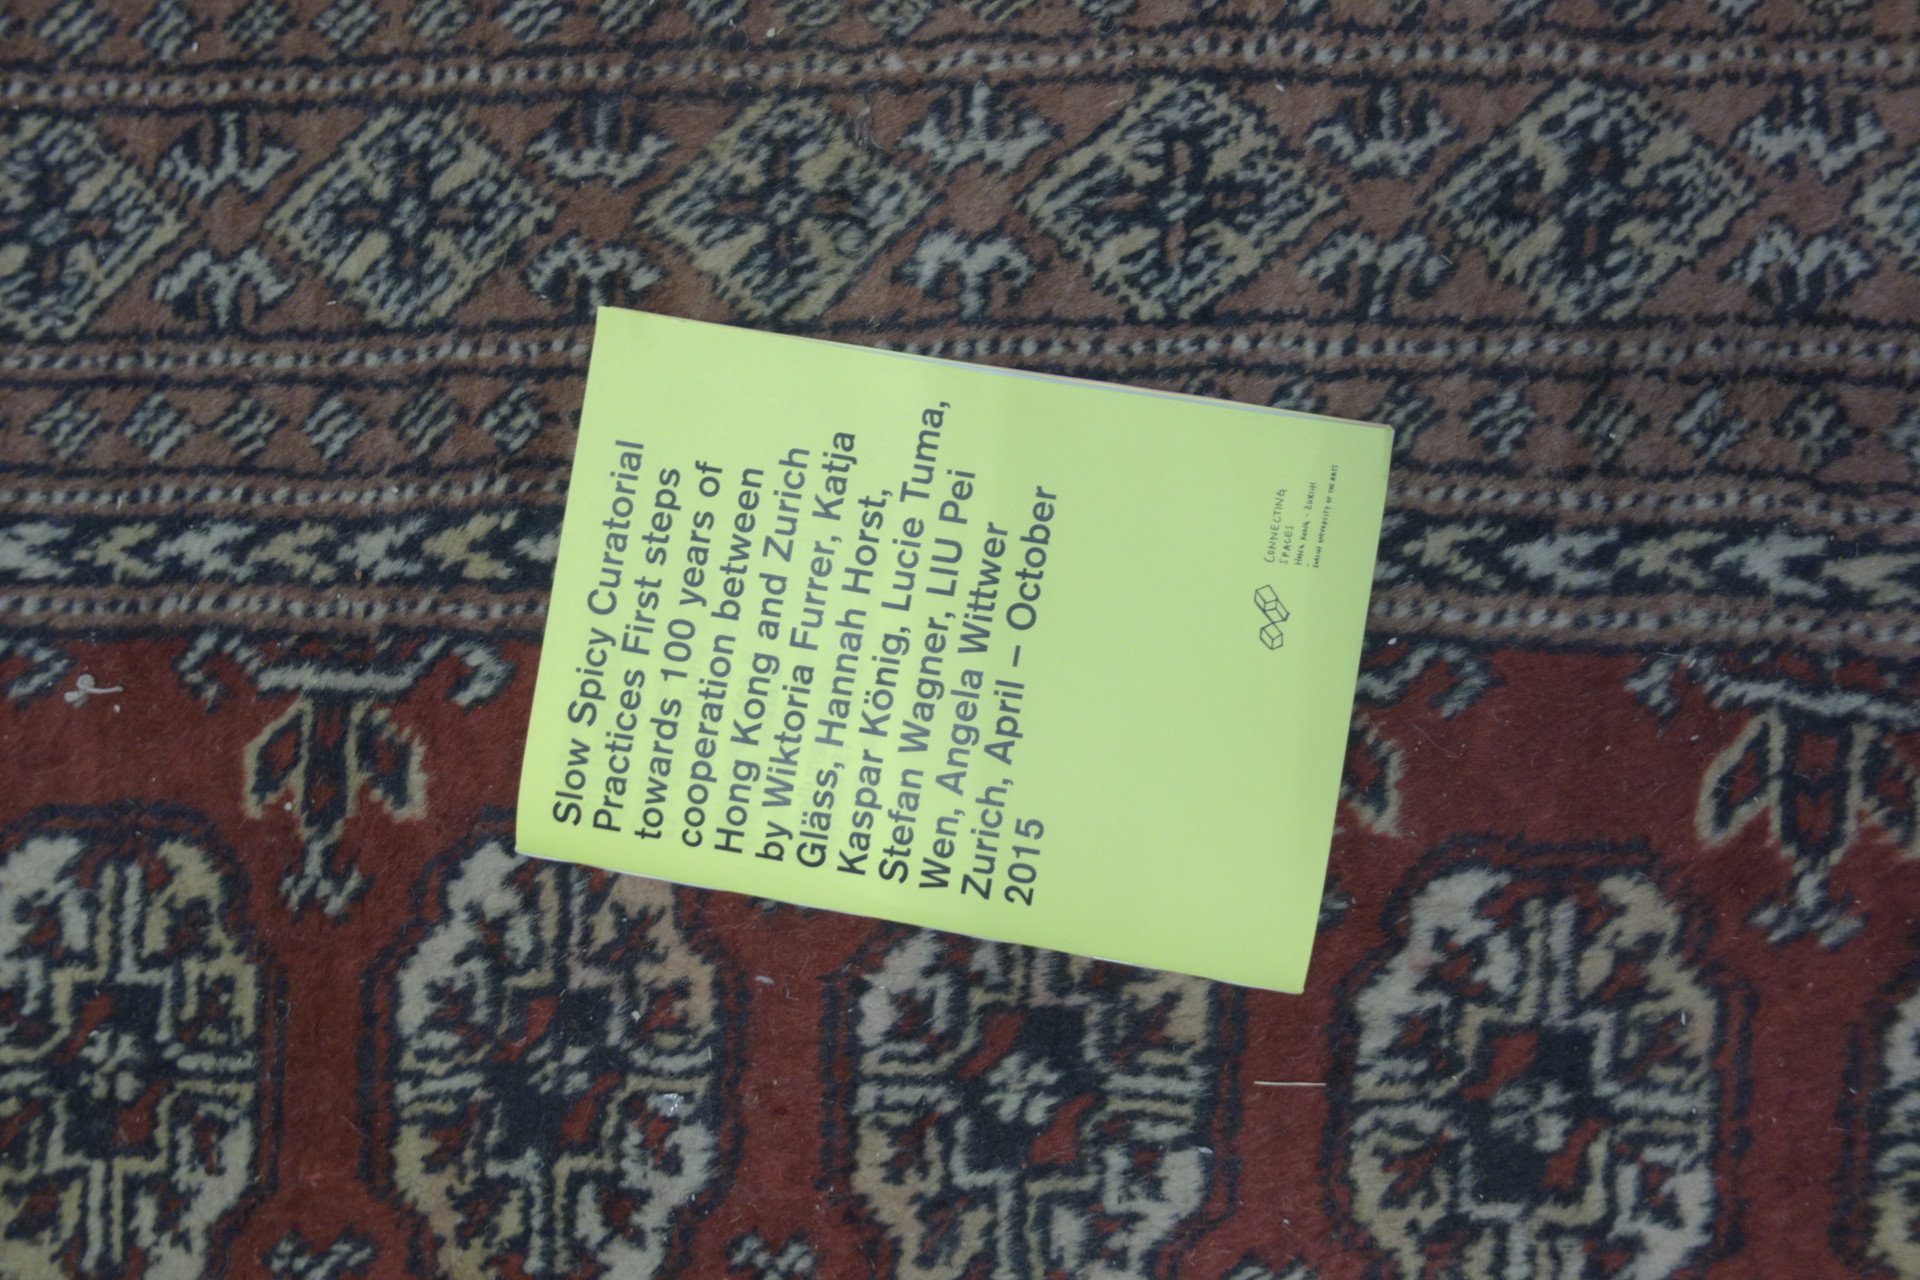 Slow Spicy Curatorial
Practices First steps
towards 100 years of
cooperation between
Hong Kong and Zurich
by Wiktoria Furrer, Katja
Gläss, Hannah Horst,
Kaspar König, Lucie Tuma,
Stefan Wagner, LIU Pei
Wen, Angela Wittwer
Zurich, April – October
2015
CONNECTING
SPACES
HONG KONG - ZURICH
ZURICH UNIVERSITY OF THE ARTS